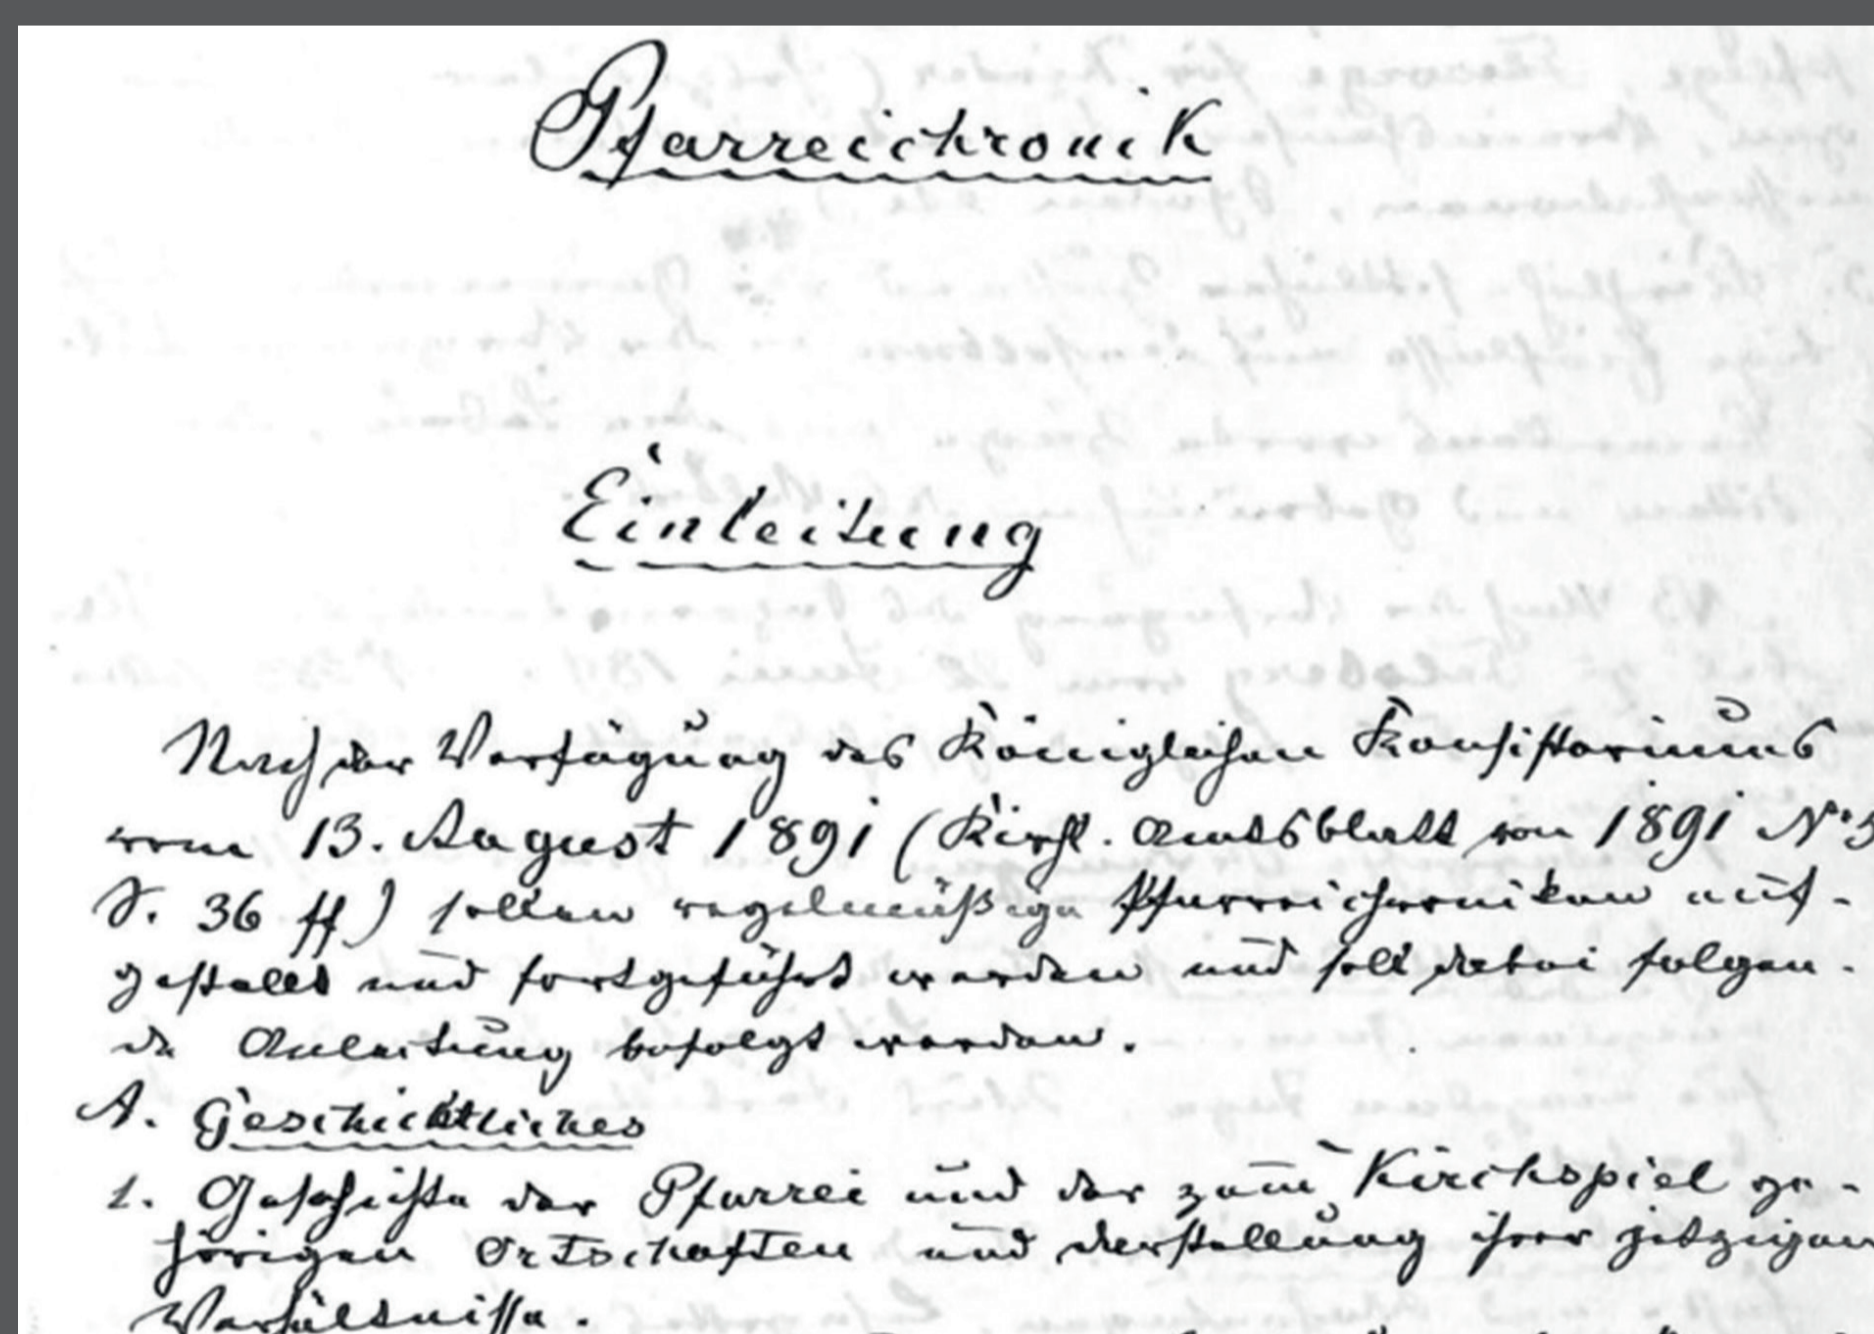 Pfarreichronik
Einleitung
Nach der Verfügung des Königlichen Konsistoriums
vom 13. August 1891 (Kirchl. Amtsblatt von 1891 N° 5
S. 36 ff) sollen regelmäßige Pfarreichroniken auf-
gestellt und fortgeführt werden und soll dabei folgen-
de Anleitung befolgt werden.
A. Geschichtliches
1. Geschichte der Pfarrei und der zum Kirchspiel ge-
hörigen Ortschaften und Darstellung ihrer jetzigen
Verhältnisse.